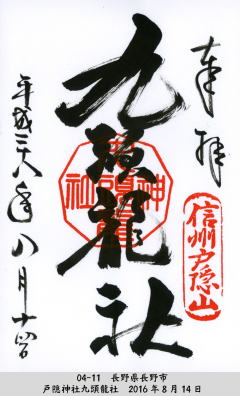 奉拝
信州戸隠山
九頭龍社
平成二十八年八月十四日
04-11 長野県長野市
戸隠神社九頭龍社 2016年8月14日